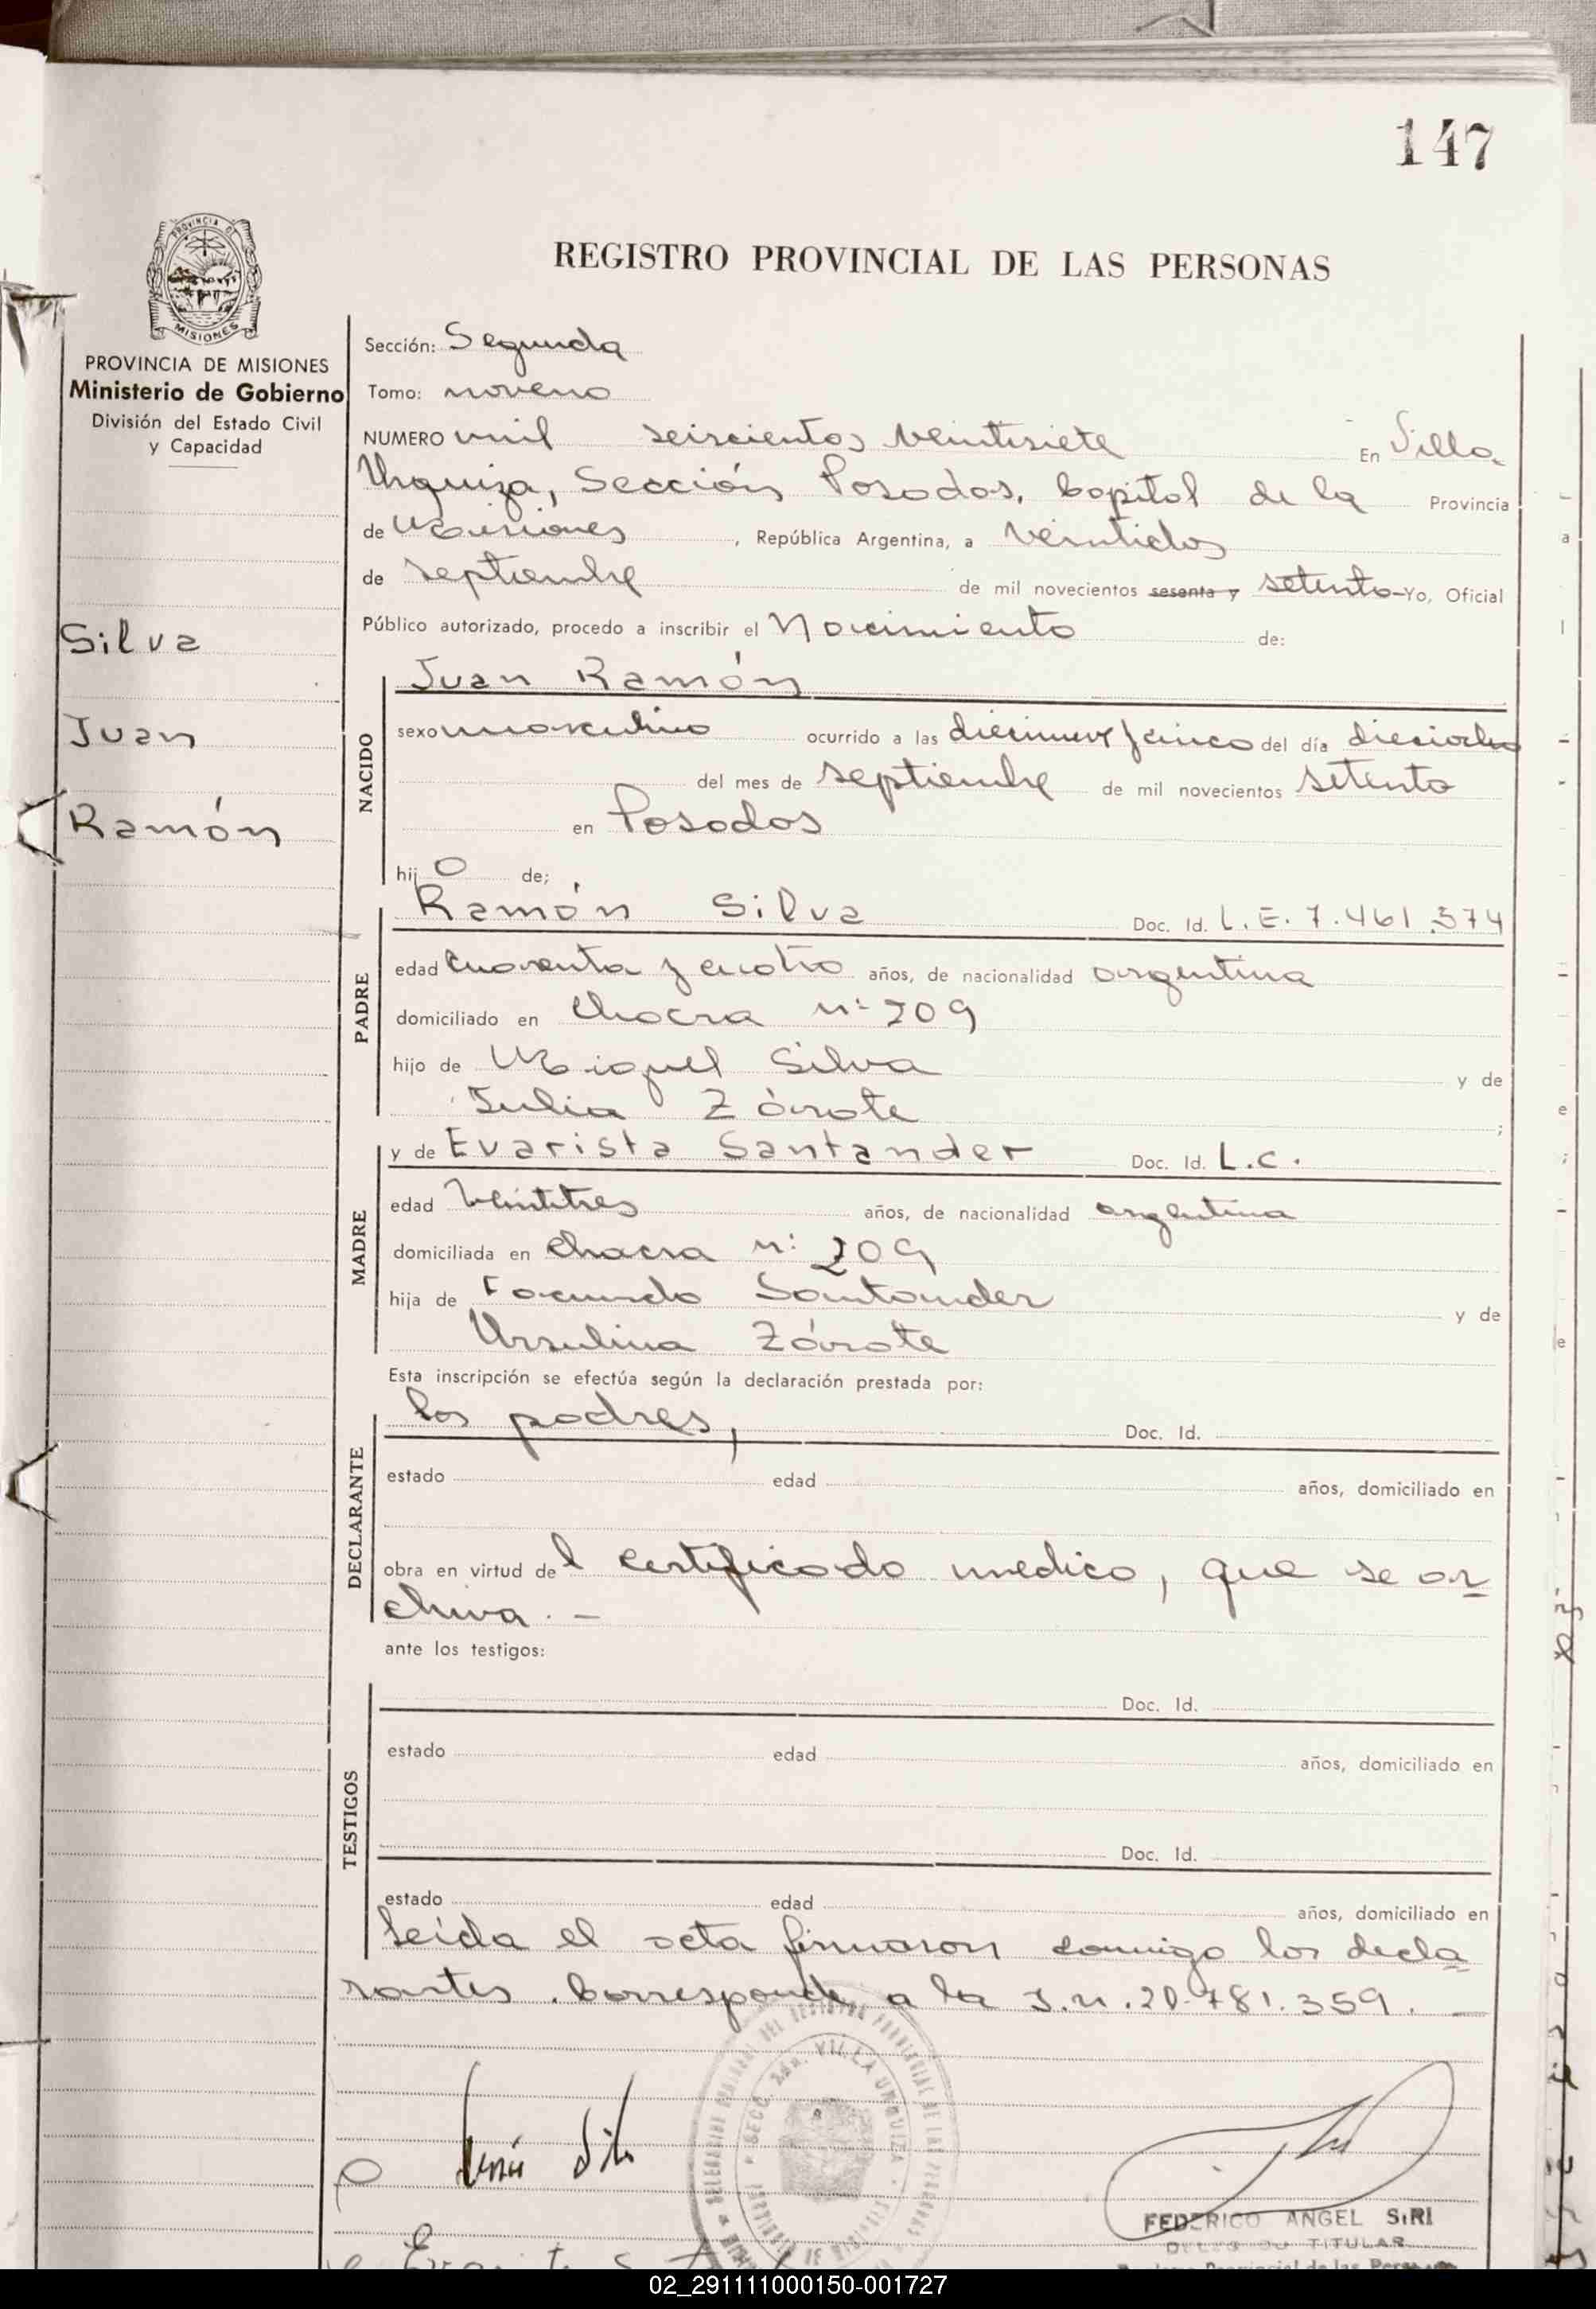 147
REGISTRO PROVINCIAL DE LAS PERSONAS
PROVINCIA DE MISIONES
Ministerio de Gobierno
División del Estado Civil
y Capacidad
Silva
Juan
Ramón
Sección: Segunda
Tomo: noveno
NUMERO mil seiscientos veintisiete En Villa
Urquiza, Sección Posadas, Capital de la Provincia
de Misiones, República Argentina, a veintidos
de septiembre de mil novecientos sesenta y setenta - Yo, Oficial
Público autorizado, procedo a inscribir el Nacimiento de:
Juan Ramón
NACIDO
sexo masculino ocurrido a las diecinueve y cinco del día dieciocho
del mes de septiembre de mil novecientos setenta
en Posadas
hijo de;
PADRE
Ramón Silva Doc. Id. L.E. 7.461.574
edad cuarenta y cuatro años, de nacionalidad argentina
domiciliado en Chacra nº 209
hijo de Miguel Silva y de
Julia Zárate ;
MADRE
y de Evarista Santander Doc. Id. L.C.
edad veintitres años, de nacionalidad argentina
domiciliada en Chacra nº 209
hija de Facundo Santander y de
Ursulina Zárate
Esta inscripción se efectúa según la declaración prestada por:
DECLARANTE
los padres, Doc. Id.
estado edad años, domiciliado en
obra en virtud del certificado medico, que se ar
chiva. -
ante los testigos:
TESTIGOS
Doc. Id.
estado edad años, domiciliado en
Doc. Id.
estado edad años, domiciliado en
Leída el acta firmaron conmigo los decla
rantes. Corresponde a la I.n. 20.781.359. -
SECC. 2da. VILLA URQUIZA
FEDERICO ANGEL SIRI
TITULAR
02_291111000150-001727